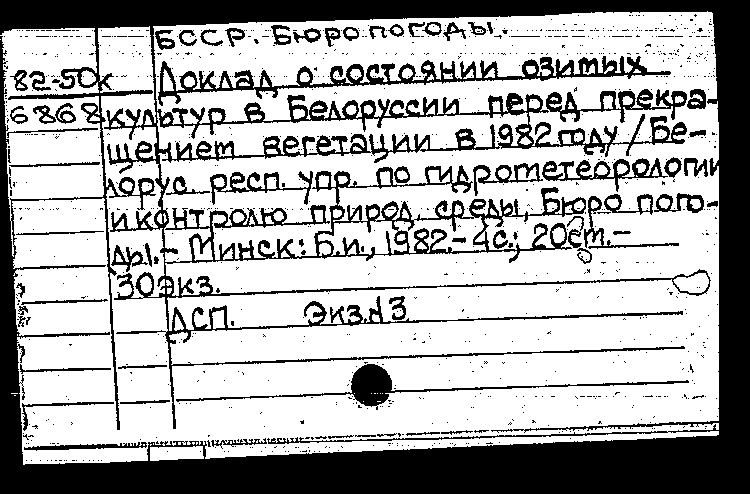 БССР. Бюро погоды.
82-50к Доклад о состоянии озимых
6868 культур в Белоруссии перед прекра-
щением вегетации в 1982 году / Бе-
лорус. респ. упр. по гидрометеорологии
и контролю природ. среды, Бюро пого-
ды. - Минск: Б.и., 1982. - 4с.; 20см. -
30экз.
ДСП. Экз.N3